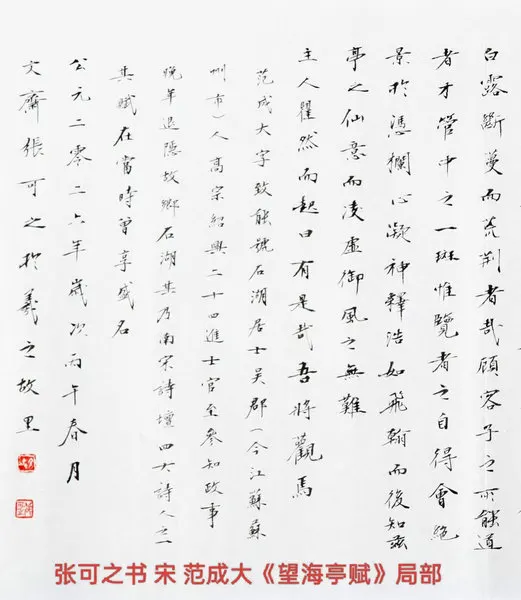 白露斷蔓而荒荆者哉顧客子之所能道
者才管中之一斑惟覽者之自得會絶
景於憑欄心凝神釋浩如飛翰而後知兹
亭之仙意而凌虚御風之無難
主人瞿然而起曰有是哉吾將觀焉
范成大字致能號石湖居士吴郡(今江蘇蘇
州市)人高宗紹興二十四進士官至參知政事
晚年退隱故鄉石湖其乃南宋詩壇四大詩人之一
其賦在當時曾享盛名
公元二零二六年歲次丙午春月
文齋張可之於羲之故里
张可之书 宋 范成大《望海亭赋》局部